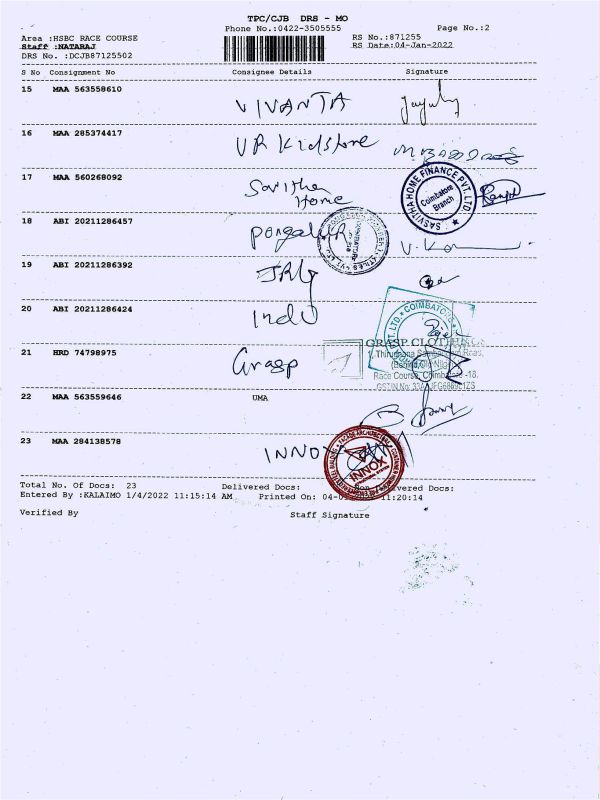 TPC/CJB DRS - MO
Phone No.:0422-3505555 Page No.:2
Area :HSBC RACE COURSE RS No.:871255
Staff :NATARAJ RS Date:04-Jan-2022
DRS No. :DCJB87125502
S No Consignment No Consignee Details Signature
15 MAA 563558610 VIVANTA
16 MAA 285374417 VR Kidstore
17 MAA 560268092 Savitha Home
SASVITHA HOME FINANCE PVT. LTD
Coimbatore Branch
18 ABI 20211286457
19 ABI 20211286392
20 ABI 20211286424 Indu
PVT. LTD. * COIMBATORE
21 HRD 74798975 Grasp
GRASP CLOTHINGS
Race Course, Coimbatore -18.
22 MAA 563559646 UMA
23 MAA 284138578 INNOX
INNOX
Total No. Of Docs: 23 Delivered Docs: Non Delivered Docs:
Entered By :KALAIMO 1/4/2022 11:15:14 AM Printed On: 11:20:14
Verified By Staff Signature